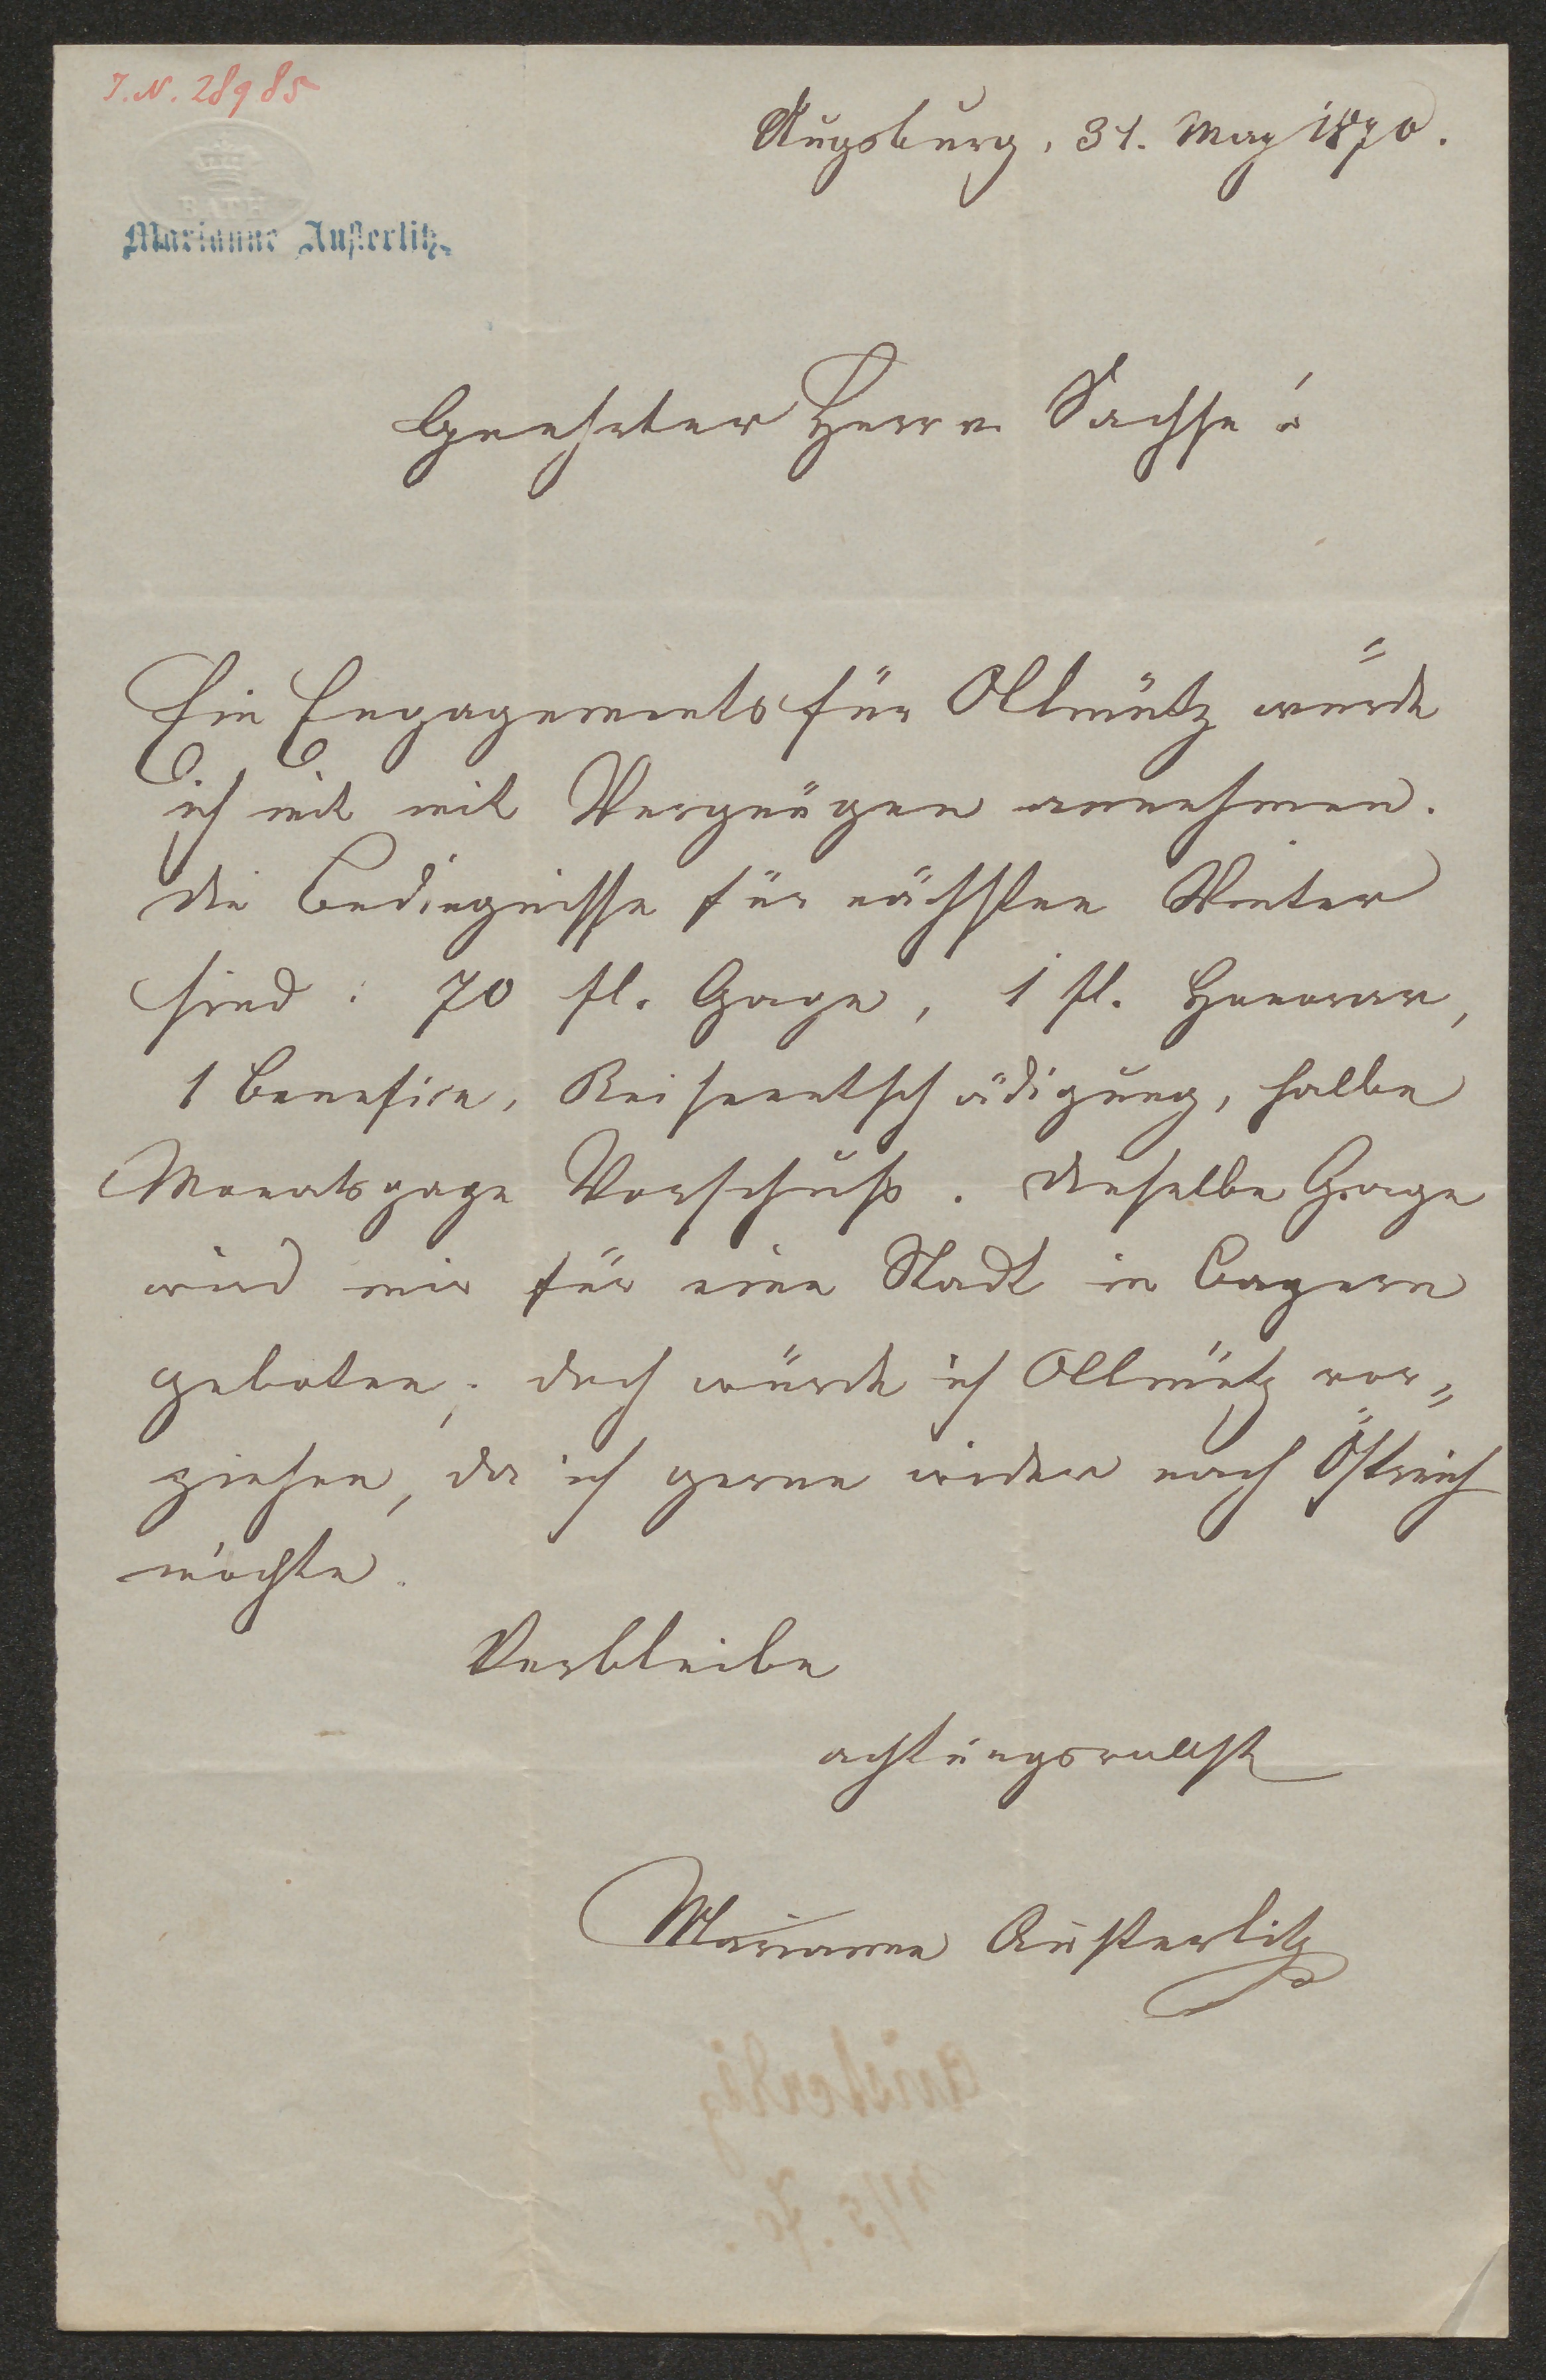 I.N. 28985
Augsburg, 31. May 1870.
BATH
Marianne Austerlitz.
Geehrter Herr v. Sachse!
Ein Engagements für Ollmütz würde
ich mit mit Vergnügen annehmen.
die Bedingnisse für nächsten Winter
sind: 70 fl. Gage, 1 fl. Honorar,
1 Benefice, Reiseentschädigung, halbe
Monatsgage Vorschuß. dieselbe Gage
wird mir für eine Stadt in Bayern
geboten; doch würde ich Ollmütz vor=
ziehen, da ich gerne wieder nach Östreich
möchte.
Verbleibe
achtungsvollst
Marianne Austerlitz